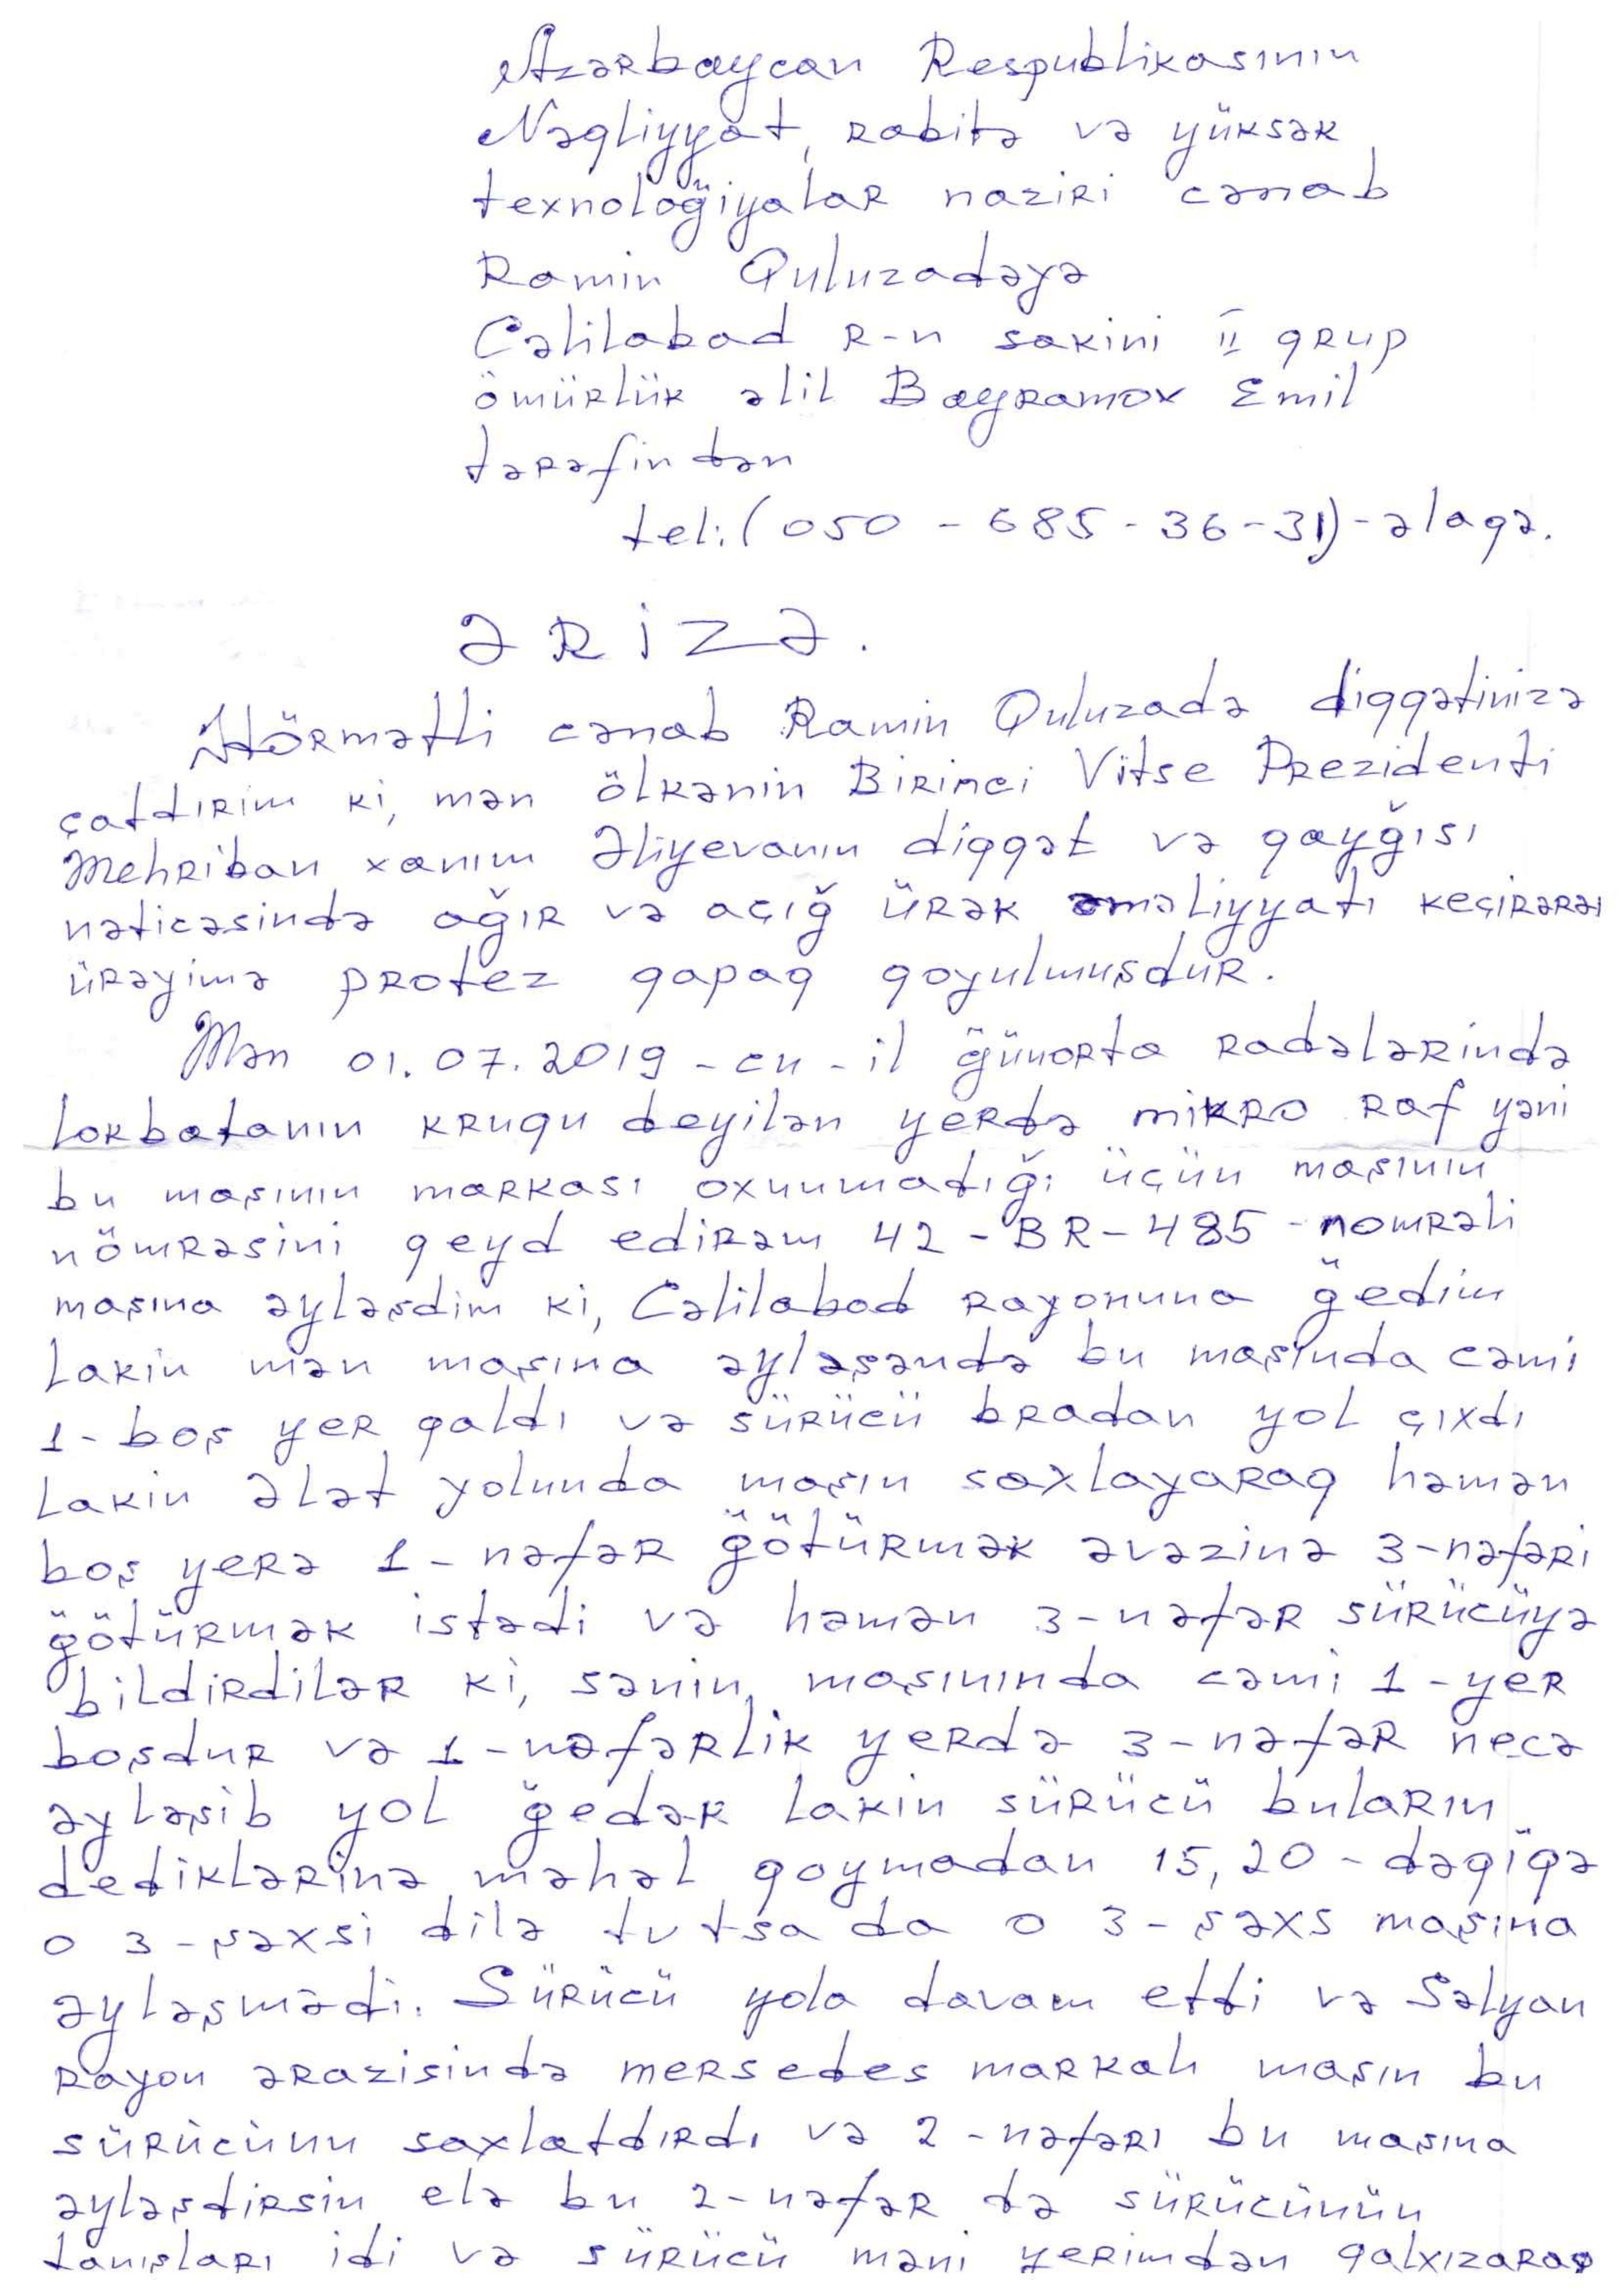 Azərbaycan Respublikasının
Nəqliyyat, rabitə və yüksək
texnoloğiyalar naziri cənab
Ramin Quluzadəyə
Cəlilabad R-n sakini II qrup
ömürlük əlil Bayramov Emil
tərəfindən
tel:(050-685-36-31)-əlaqə.
ƏRİZƏ.
Hörmətli cənab Ramin Quluzadə diqqətinizə
çatdırım ki, mən ölkənin Birinci Vitse Prezidenti
Mehriban xanım Əliyevanın diqqət və qayğısı
nəticəsində ağır və açığ ürək əməliyyatı keçirərəı
ürəyimə protez qapaq qoyulmuşdur.
Mən 01.07.2019-cu-il ğünorta radələrində
Lokbatanın kruqu deyilən yerdə mikro Raf yəni
bu maşının markası oxunmadığı üçün maşının
nömrəsini qeyd edirəm 42-BR-485-nomrəli
maşına əyləşdim ki, Cəlilabad rayonuna ğedim
Lakin mən maşına əyləşəndə bu maşında cəmi
1-boş yer qaldı və sürücü bradan yol çıxdı
Lakin Ələt yolunda maşın saxlayaraq həmən
boş yerə 1-nəfər ğötürmək əvəzinə 3-nəfəri
ğötürmək istədi və həmən 3-nəfər sürücüyə
bildirdilər ki, sənin maşınında cəmi 1-yer
boşdur və 1-nəfərlik yerdə 3-nəfər necə
əyləşib yol ğedək Lakin sürücü buların
dediklərinə məhəl qoymadan 15,20-dəqiqə
o 3-şəxsi dilə tutsa da o 3-şəxs maşına
əyləşmədi. Sürücü yola davam etdi və Salyan
rayon ərazisində mersedes markalı maşın bu
sürücünu saxlatdırdı və 2-nəfəri bu maşına
əyləşdirsin elə bu 2-nəfər də sürücünün
tanışları idi və sürücü məni yerimdən qalxızaraq